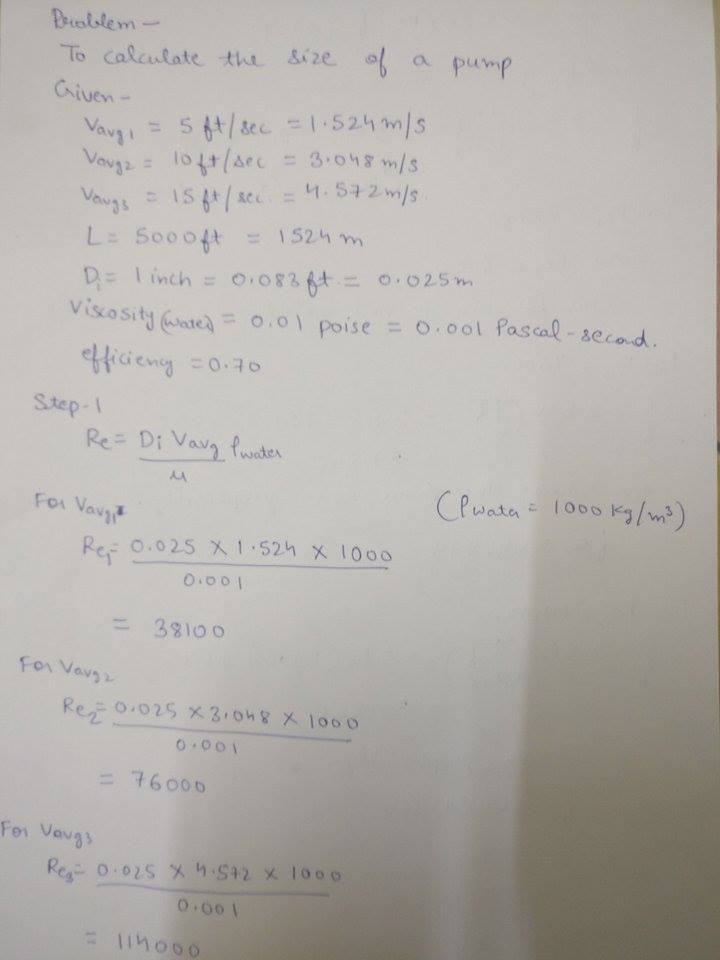 Problem -
To calculate the size of a pump
Given -
Vavg1 = 5 ft/sec = 1.524 m/s
Vavg2 = 10 ft/sec = 3.048 m/s
Vavg3 = 15 ft/sec. = 4.572 m/s.
L = 5000 ft = 1524 m
Di = 1 inch = 0.083 ft. = 0.025 m
Viscosity (water) = 0.01 poise = 0.001 Pascal-second.
efficiency = 0.70
Step-1
Re = Di Vavg ρwater
μ
For Vavg1
(ρwater = 1000 kg/m³)
Re1 = 0.025 × 1.524 × 1000
0.001
= 38100
For Vavg2
Re2 = 0.025 × 3.048 × 1000
0.001
= 76000
For Vavg3
Re3 = 0.025 × 4.572 × 1000
0.001
= 114000